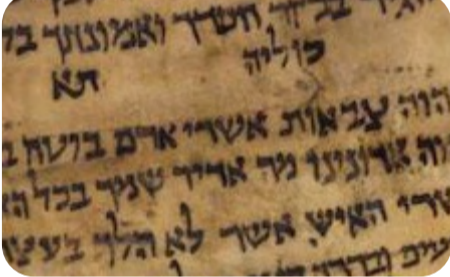 גיד בבקר חסדך ואמונתך בל
כוליה תא
הוה צבאות אשרי אדם בוטח ב
וה אדונינו מה אדיר שמך בכל הא
שרי האיש אשר לא הלך בעצ
עים ובדרך